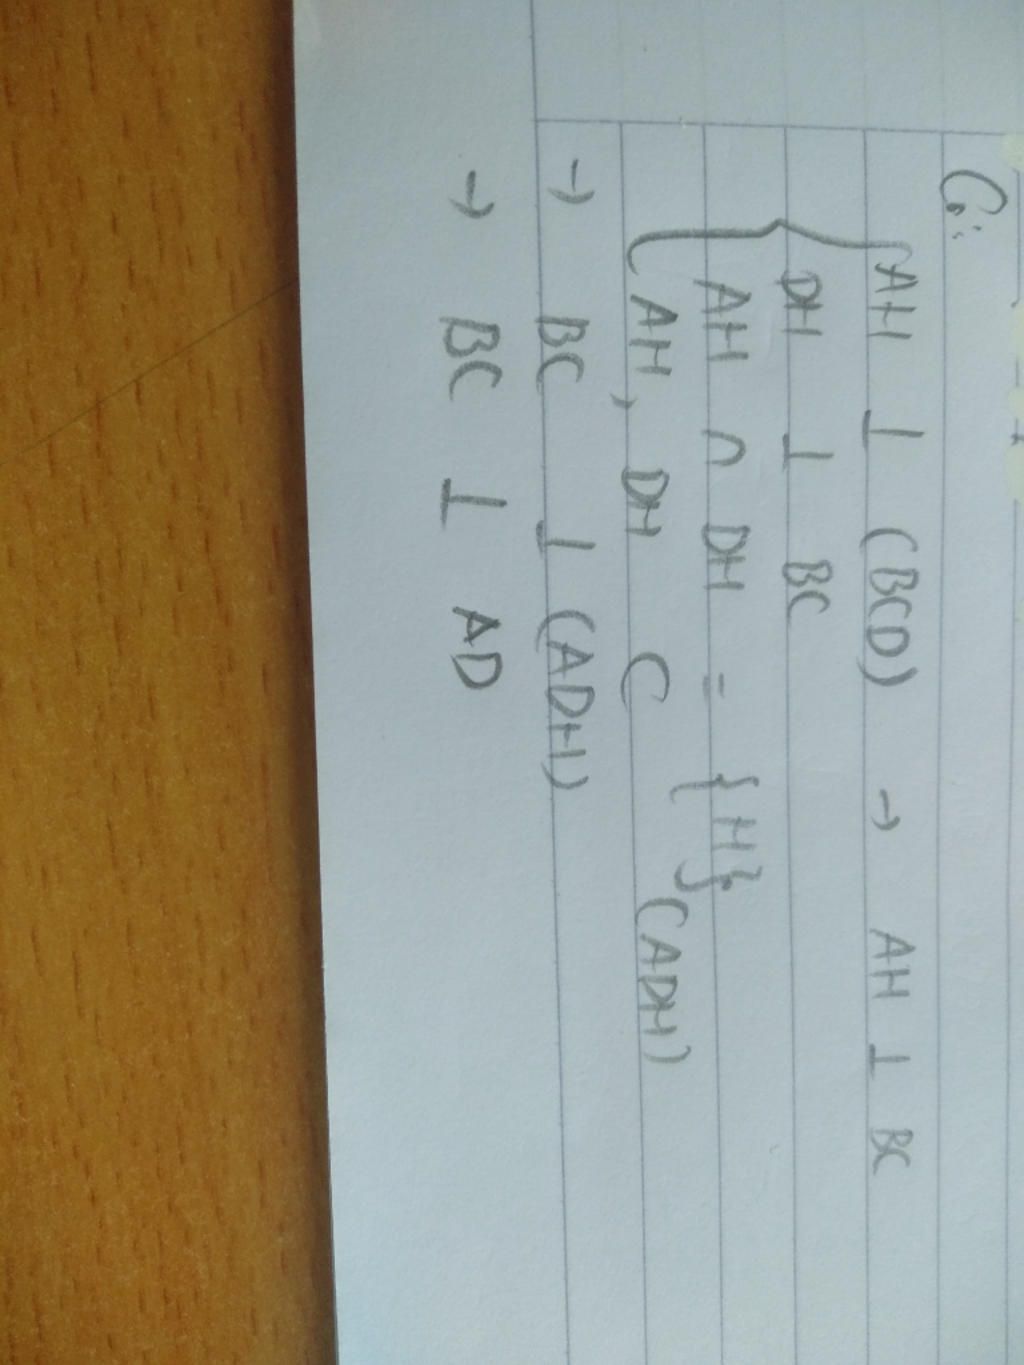 Có:
AH ⊥ (BCD) → AH ⊥ BC
DH ⊥ BC
AH ∩ DH = {H}
AH, DH ⊂ (ADH)
→ BC ⊥ (ADH)
→ BC ⊥ AD